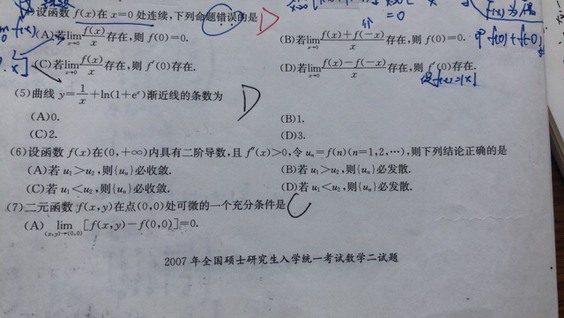 设函数 f(x)在 x=0 处连续,下列命题错误的是 D
(A)若lim f(x)/x 存在,则 f(0)=0. (B)若lim (f(x)+f(-x))/x 存在,则 f(0)=0.
(C)若lim f(x)/x 存在,则 f′(0)存在. (D)若lim (f(x)-f(-x))/x 存在,则 f′(0)存在.
(5)曲线 y=1/x+ln(1+eˣ)渐近线的条数为 D
(A)0. (B)1.
(C)2. (D)3.
(6)设函数 f(x)在(0,+∞)内具有二阶导数,且 f″(x)>0,令 uₙ=f(n)(n=1,2,⋯),则下列结论正确的是
(A)若 u₁>u₂,则{uₙ}必收敛. (B)若 u₁>u₂,则{uₙ}必发散.
(C)若 u₁<u₂,则{uₙ}必收敛. (D)若 u₁<u₂,则{uₙ}必发散.
(7)二元函数 f(x,y)在点(0,0)处可微的一个充分条件是 C
(A) lim (x,y)→(0,0) [f(x,y)-f(0,0)]=0.
2007 年全国硕士研究生入学统一考试数学二试题